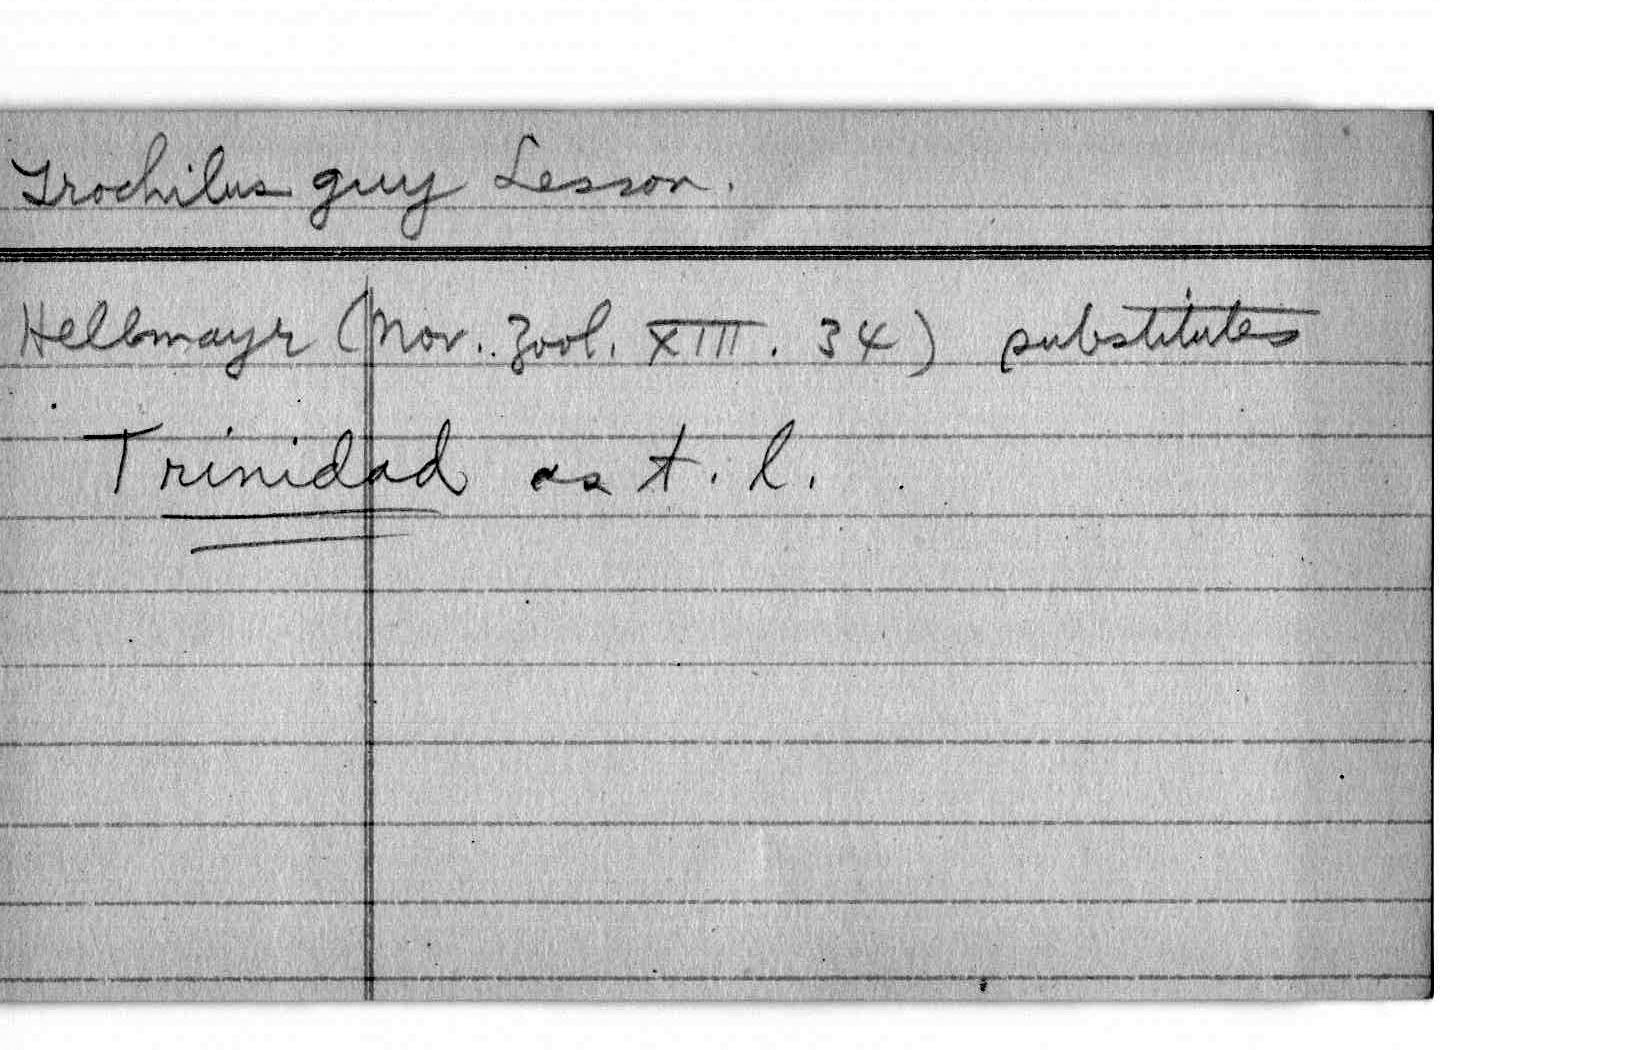 Trochilus guy Lesson.
Hellmayr (Nov. Zool. XIII. 34) substitutes
Trinidad as t. l.